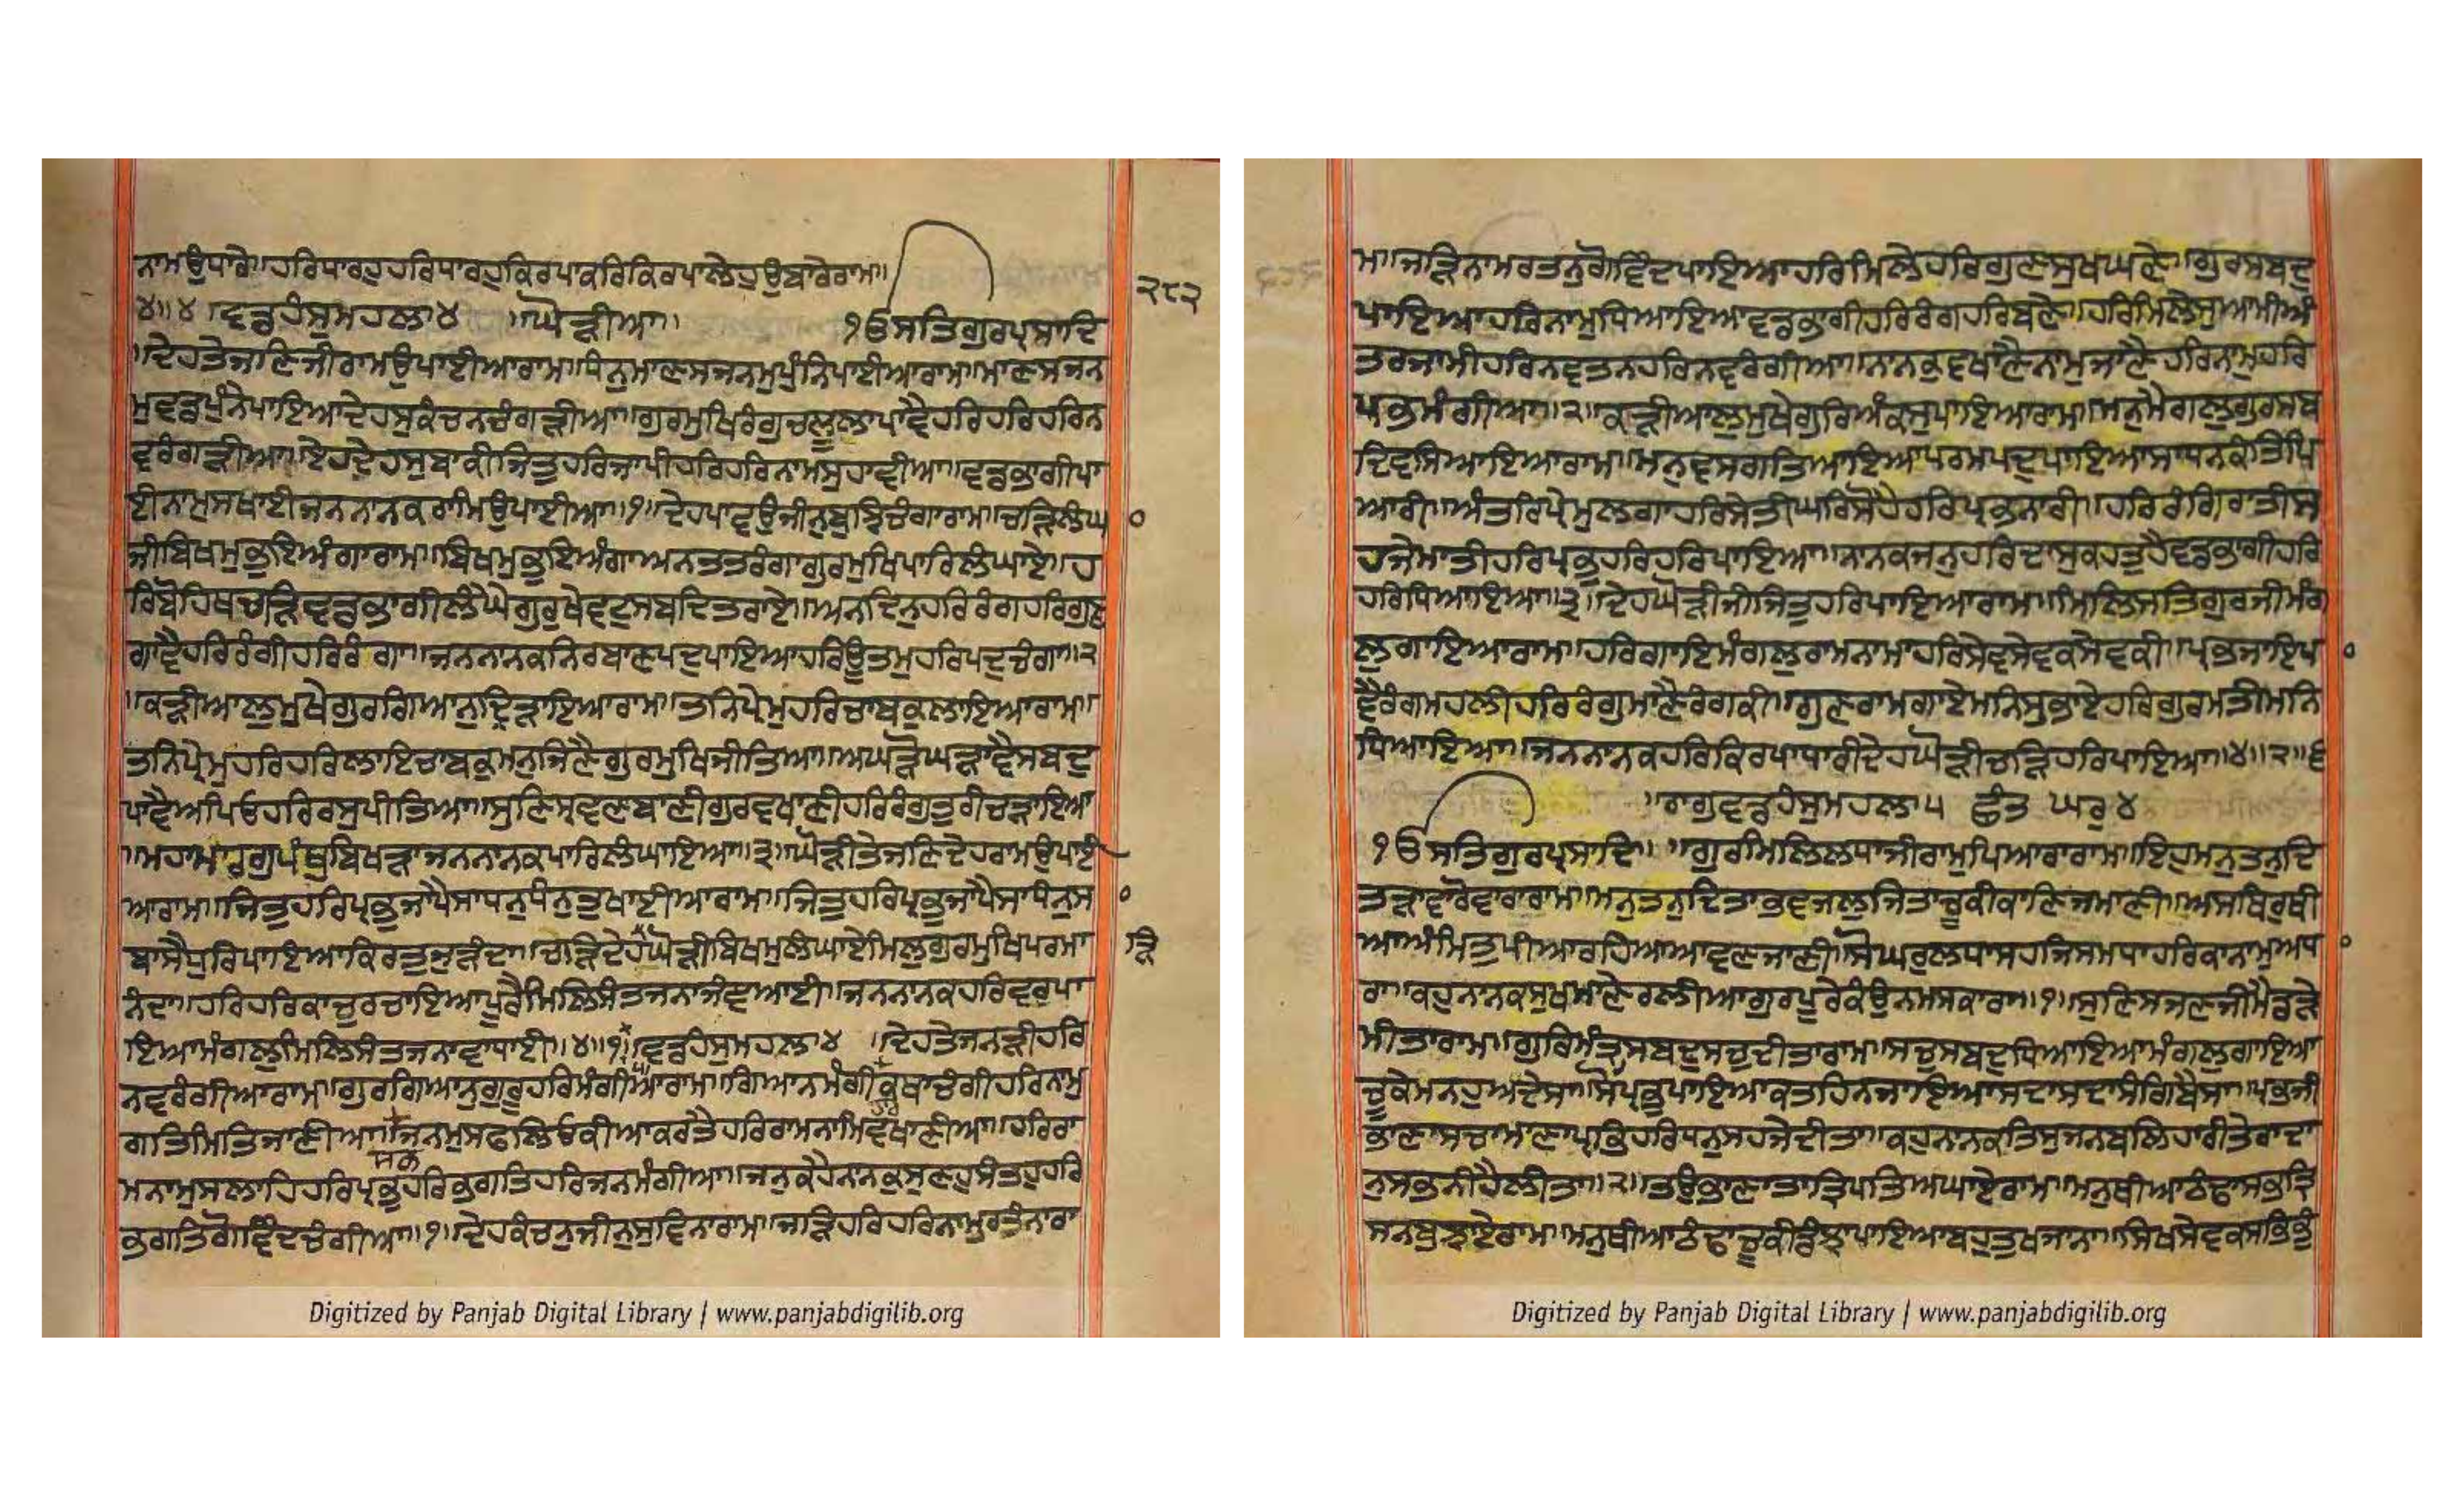 ਨਾਮਉਧਾਰੇ॥ਹਰਿਧਾਰਹੁਹਰਿਧਾਰਹੁਕਿਰਪਾਕਰਿਕਿਰਪਾਲੇਹੁਉਬਾਰੇਰਾਮ॥
੪॥੪॥ਵਡਹੰਸੁਮਹਲਾ੪ ॥ਘੋੜੀਆ॥ ੧ਓਸਤਿਗੁਰਪ੍ਰਸਾਦਿ
੨੮੨
॥ਦੇਹਤੇਜਣਿਜੀਰਾਮਉਪਾਈਆਰਾਮ॥ਧਿਨੁਮਾਣਸਜਨਮੁਪੁੰਨਿਪਾਈਆਰਾਮ॥ਮਾਣਸਜਨ
ਮੁਵਡਪੁੰਨੇਪਾਇਆਦੇਹਸੁਕੰਚਨਚੰਗੜੀਆ॥ਗੁਰਮੁਖਿਰੰਗੁਚਲੂਲਾਪਾਵੈਹਰਿਹਰਿਹਰਿਨ
ਵਰੰਗੜੀਆ॥ਏਹਦੇਹਸੁਬਾਕੀਜਿਤੁਹਰਿਜਾਪੀਹਰਿਹਰਿਨਾਮਸੁਹਾਵੀਆ॥ਵਡਭਾਗੀਪਾ
ਈਨਾਮੁਸਖਾਈਜਨਨਾਨਕਰਾਮਿਉਪਾਈਆ॥੧॥ਦੇਹਪਾਵਉਜੀਨੁਬੁਝਿਚੰਗਾਰਾਮ॥ਚੜਿਲੰਘਾ
ਜੀਬਿਖਮੁਭੁਇਅੰਗਾਰਾਮ॥ਬਿਖਮੁਭੁਇਅੰਗਾਅਨਤਤਰੰਗਾਗੁਰਮੁਖਿਪਾਰਿਲੰਘਾਏ॥ਹ
ਰਿਬੋਹਿਥਚੜਿਵਡਭਾਗੀਲੰਘੈਗੁਰੁਖੇਵਟੁਸਬਦਿਤਰਾਏ॥ਅਨਦਿਨੁਹਰਿਰੰਗਹਰਿਗੁਣ
ਗਾਵੈਹਰਿਰੰਗੀਹਰਿਰੰਗਾ॥ਜਨਨਾਨਕਨਿਰਬਾਣਪਦੁਪਾਇਆਹਰਿਉਤਮੁਹਰਿਪਦੁਚੰਗਾ॥੨
॥ਕੜੀਆਲੁਮੁਖੇਗੁਰਗਿਆਨੁਦ੍ਰਿੜਾਇਆਰਾਮ॥ਤਨਿਪ੍ਰੇਮੁਹਰਿਚਾਬਕੁਲਾਇਆਰਾਮ॥
ਤਨਿਪ੍ਰੇਮੁਹਰਿਹਰਿਲਾਇਚਾਬਕੁਮਨੁਜਿਣੈਗੁਰਮੁਖਿਜੀਤਿਆ॥ਅਘੜੋਘੜਾਵੈਸਬਦੁ
ਪਾਵੈਅਪਿਓਹਰਿਰਸੁਪੀਤਿਆ॥ਸੁਣਿਸ੍ਰਵਣਬਾਣੀਗੁਰਵਖਾਣੀਹਰਿਰੰਗੁਤੁਰੀਚੜਾਇਆ
॥ਮਹਾਮਾਰਗੁਪੰਥੁਬਿਖੜਾਜਨਨਾਨਕਪਾਰਿਲੰਘਾਇਆ॥੩॥ਘੋੜੀਤੇਜਣਿਦੇਹਰਾਮਉਪਾਈ
ਆਰਾਮ॥ਜਿਤੁਹਰਿਪ੍ਰਭੁਜਾਪੈਸਾਧਨੁਧੰਨੁਤੁਖਾਈਆਰਾਮ॥ਜਿਤੁਹਰਿਪ੍ਰਭੁਜਾਪੈਸਾਧੰਨੁਸ
ਬਾਸੈਧੁਰਿਪਾਇਆਕਿਰਤੁਜੁੜੰਦਾ॥ਚੜਿਦੇਹਘੋੜੀਬਿਖਮੁਲੰਘਾਏਮਿਲੁਗੁਰਮੁਖਿਪਰਮਾ
ੜਿ
ਨੰਦਾ॥ਹਰਿਹਰਿਕਾਜੁਰਚਾਇਆਪੂਰੈਮਿਲਿਸੰਤਜਨਾਜੰਞਆਈ॥ਜਨਨਾਨਕਹਰਿਵਰੁਪਾ
ਇਆਮੰਗਲੁਮਿਲਿਸੰਤਜਨਾਵਾਧਾਈ॥੪॥੧॥ਵਡਹੰਸੁਮਹਲਾ੪ ॥ਦੇਹਤੇਜਨੜੀਹਰਿ
ਨਵਰੰਗੀਆਰਾਮ॥ਗੁਰਗਿਆਨੁਗੁਰੁਹਰਿਮੰਗੀਆਰਾਮ॥ਗਿਆਨਮੰਗੀਕਥਾਚੰਗੀਹਰਿਨਾਮੁ
ਗਤਿਮਿਤਿਜਾਣੀਆ॥ਜਨਮੁਸਫਲਿਓਕੀਆਕਰਤੈਹਰਿਰਾਮਨਾਮਿਵਖਾਣੀਆ॥ਹਰਿਰਾ
ਮਨਾਮੁਸਲਾਹਿਹਰਿਪ੍ਰਭੁਹਰਿਭਗਤਿਹਰਿਜਨਮੰਗੀਆ॥ਜਨੁਕਹੈਨਾਨਕੁਸੁਣਹੁਸੰਤਹੁਹਰਿ
ਭਗਤਿਗੋਵਿੰਦਚੰਗੀਆ॥੧॥ਦੇਹਕੰਚਨੁਜੀਨੁਸੁਵਿਨਾਰਾਮ॥ਜੜਿਹਰਿਹਰਿਨਾਮੁਰਤੰਨਾਰਾ
ਮ॥ਜੜਿਨਾਮਰਤਨੁਗੋਵਿੰਦਪਾਇਆਹਰਿਮਿਲੇਹਰਿਗੁਣਸੁਖਘਣੇ॥ਗੁਰਸਬਦੁ
ਪਾਇਆਹਰਿਨਾਮੁਧਿਆਇਆਵਡਭਾਗੀਹਰਿਰੰਗਹਰਿਬਣੇ॥ਹਰਿਮਿਲੇਸੁਆਮੀਅੰ
ਤਰਜਾਮੀਹਰਿਨਵਤਨਹਰਿਨਵਰੰਗੀਆ॥ਨਾਨਕੁਵਖਾਣੈਨਾਮੁਜਾਣੈਹਰਿਨਾਮੁਹਰਿ
ਪ੍ਰਭਮੰਗੀਆ॥੨॥ਕੜੀਆਲੁਮੁਖੇਗੁਰਿਅੰਕਸੁਪਾਇਆਰਾਮ॥ਮਨੁਮੈਗਲੁਗੁਰਸਬ
ਦਿਵਸਿਆਇਆਰਾਮ॥ਮਨੁਵਸਗਤਿਆਇਆਪਰਮਪਦੁਪਾਇਆਸਾਧਨਕੰਤਿਪਿ
ਆਰੀ॥ਅੰਤਰਿਪ੍ਰੇਮੁਲਗਾਹਰਿਸੇਤੀਘਰਿਸੋਹੈਹਰਿਪ੍ਰਭਨਾਰੀ॥ਹਰਿਰੰਗਿਰਾਤੀਸ
ਹਜੇਮਾਤੀਹਰਿਪ੍ਰਭੁਹਰਿਹਰਿਪਾਇਆ॥ਨਾਨਕਜਨੁਹਰਿਦਾਸੁਕਹਤੁਹੈਵਡਭਾਗੀਹਰਿ
ਹਰਿਧਿਆਇਆ॥੩॥ਦੇਹਘੋੜੀਜੀਜਿਤੁਹਰਿਪਾਇਆਰਾਮ॥ਮਿਲਿਸਤਿਗੁਰਜੀਮੰਗ
ਲੁਗਾਇਆਰਾਮ॥ਹਰਿਗਾਇਮੰਗਲੁਰਾਮਨਾਮਾਹਰਿਸੇਵਸੇਵਕਸੇਵਕੀ॥ਪ੍ਰਭਜਾਇਪਾ
ਵੈਰੰਗਮਹਲੀਹਰਿਰੰਗੁਮਾਣੈਰੰਗਕੀ॥ਗੁਣਰਾਮਗਾਏਮਨਿਸੁਭਾਏਹਰਿਗੁਰਮਤੀਮਨਿ
ਧਿਆਇਆ॥ਜਨਨਾਨਕਹਰਿਕਿਰਪਾਧਾਰੀਦੇਹਘੋੜੀਚੜਿਹਰਿਪਾਇਆ॥੪॥੨॥੬
॥ਰਾਗੁਵਡਹੰਸੁਮਹਲਾ੫ ਛੰਤ ਘਰੁ ੪
੧ਓਸਤਿਗੁਰਪ੍ਰਸਾਦਿ॥ ॥ਗੁਰਮਿਲਿਲਧਾਜੀਰਾਮੁਪਿਆਰਾਰਾਮ॥ਇਹੁਮਨੁਤਨੁਦਿ
ਤੜਾਵਾਰੋਵਾਰਾਰਾਮ॥ਮਨੁਤਨੁਦਿਤਾਭਵਜਲੁਜਿਤਾਚੂਕੀਕਾਣਿਜਮਾਣੀ॥ਅਸਥਿਰੁਥੀ
ਆਅੰਮਿਤੁਪੀਆਰਹਿਆਆਵਣਜਾਣੀ॥ਸੋਘਰੁਲਧਾਸਹਜਿਸਮਧਾਹਰਿਕਾਨਾਮੁਅਧਾ
ਰਾ॥ਕਹੁਨਾਨਕਸੁਖਮਾਣੇਰਲੀਆਗੁਰਪੂਰੇਕੰਉਨਮਸਕਾਰਾ॥੧॥ਸੁਣਿਸਜਣਜੀਮੈਡੜੇ
ਮੀਤਾਰਾਮ॥ਗੁਰਿਮੰਤ੍ਰੁਸਬਦੁਸਚੁਦੀਤਾਰਾਮ॥ਸਚੁਸਬਦੁਧਿਆਇਆਮੰਗਲੁਗਾਇਆ
ਚੂਕੇਮਨਹੁਅਦੇਸਾ॥ਸੋਪ੍ਰਭੁਪਾਇਆਕਤਹਿਨਜਾਇਆਸਦਾਸਦਾਸੰਗਿਬੈਸਾ॥ਪ੍ਰਭਜੀ
ਭਾਣਾਸਚਾਮਾਣਾਪ੍ਰਭਿਹਰਿਧਨੁਸਹਜੇਦੀਤਾ॥ਕਹੁਨਾਨਕਤਿਸੁਜਨਬਲਿਹਾਰੀਤੇਰਾਦਾ
ਨੁਸਭਨੀਹੈਲੀਤਾ॥੨॥ਤਉਭਾਣਾਤਾਤ੍ਰਿਪਤਿਅਘਾਏਰਾਮ॥ਮਨੁਥੀਆਠੰਢਾਸਭਤ੍ਰਿ
ਸਨਬੁਝਾਏਰਾਮ॥ਮਨੁਥੀਆਠੰਢਾਚੂਕੀਡੰਝਾਪਾਇਆਬਹੁਤੁਖਜਾਨਾ॥ਸਿਖਸੇਵਕਸਭਿਭੁੰ
Digitized by Panjab Digital Library | www.panjabdigilib.org
Digitized by Panjab Digital Library | www.panjabdigilib.org